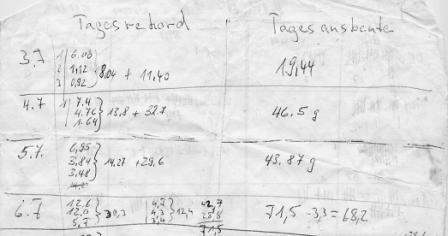 Tagesrekord Tagesausbeute
3.7 1 6.00
2 1.12 8.04 + 11.40 19,44
3 0,92
4.7 1 7.4
4.76 13,8 + 32.7 46.5 g
1.64
5.7. 6,95
3,84 14.27 + 29,6 43,87 g
3,48
6.7 12,6 4,7 42,7
12,0 30,3 4,3 12,4 28,8 71,5 - 3,3 = 68,2
5,7 3,4 71,5